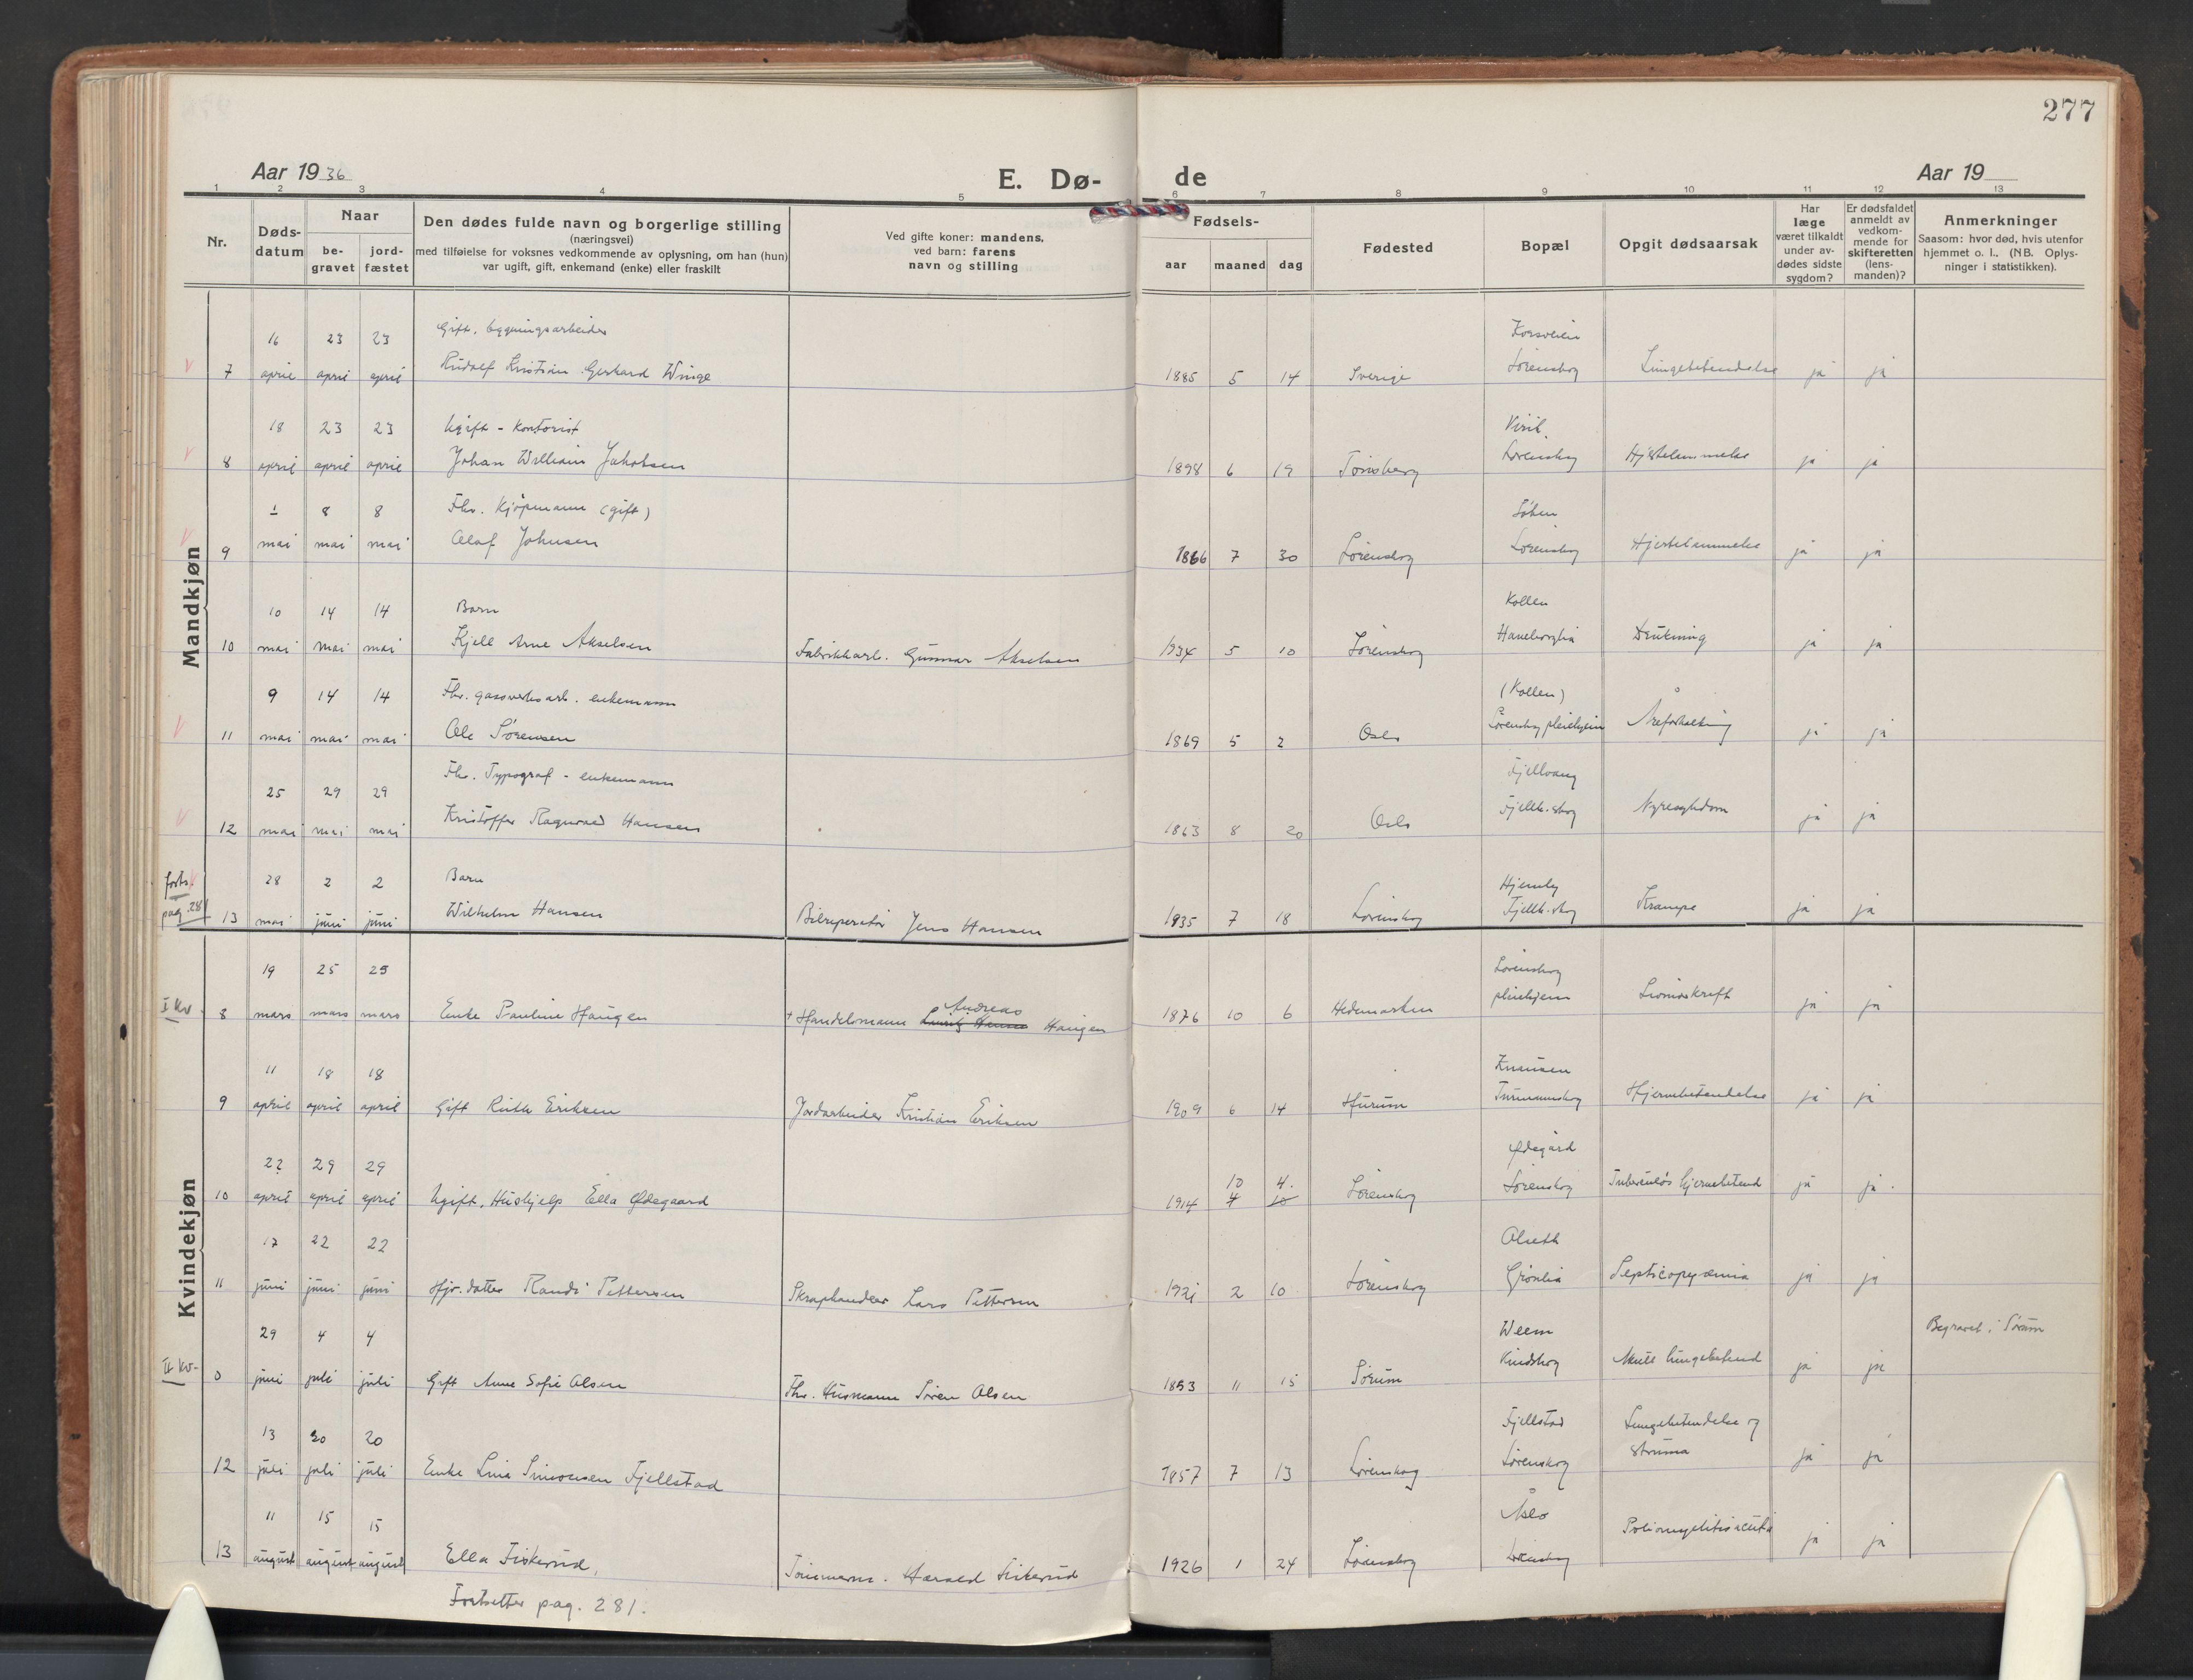 277
Aar 1936
E. Dø-
de
Aar 19
1 2 3 4 5 6 7 8 9 10 11 12 13
Nr.
Døds-
datum
Naar
be-
gravet
jord-
fæstet
Den dødes fulde navn og borgerlige stilling
(næringsvei)
med tilføielse for voksnes vedkommende av oplysning, om han (hun)
var ugift, gift, enkemand (enke) eller fraskilt
Ved gifte koner: mandens,
ved barn: farens
navn og stilling
Fødsels-
aar maaned dag
Fødested
Bopæl
Opgit dødsaarsak
Har
læge
været tilkaldt
under av-
dødes sidste
sygdom?
Er dødsfaldet
anmeldt av
vedkom-
mende for
skifteretten
(lens-
manden)?
Anmerkninger
Saasom: hvor død, hvis utenfor
hjemmet o. l., (NB. Oplys-
ninger i statistikken).
Mandkjøn
16 23 23 Gift. bygningsarbeider Korsveien
7 april april april Rudolf Kristian Gerhard Winge 1885 5 14 Sverige Lørenskog Lungebetendelse ja ja
18 23 23 Ugift - Kontorist
8 april april april Johan William Jakobsen 1898 6 19 Tønsberg Lørenskog Hjertelammelse ja ja
1 8 8 Fhv. Kjøpmann (gift)
9 mai mai mai Olaf Johnsen 1866 7 30 Lørenskog Lørenskog Hjertelammelse ja ja
10 14 14 Barn Kollen
10 mai mai mai Kjell Arne Akselsen Fabrikkarb. Gunnar Akselsen 1934 5 10 Lørenskog Haneborglia Drukning ja ja
9 14 14 Fhv. gassverksarb. enkemann (Kollen)
11 mai mai mai Ole Sørensen 1869 5 2 Oslo Lørenskog pleiehjem Åreforkalkning ja ja
25 29 29 Fhv. Typograf - enkemann Fjellvang
12 mai mai mai Kristoffer Ragnvald Hansen 1863 8 20 Oslo Fjellh.skog Nyresykdom ja ja
forts.
pag. 281
28 2 2 Barn Hjemly
13 mai juni juni Wilhelm Hansen Bilreperatør Jens Hansen 1935 7 18 Lørenskog Fjellh.skog Krampe ja ja
Kvindekjøn
19 25 25 Andreas Lørenskog
I Kv. 8 mars mars mars Enke Pauline Haugen + Handelsmann Haugen 1876 10 6 Hedemarken pleiehjem Livmorkreft ja ja
11 18 18 Knausen
9 april april april Gift Ruth Eriksen Jordarbeider Kristian Eriksen 1909 6 14 Hurum Hjernebetendelse ja ja
22 29 29 10 4. Ødegård
10 april april april Ugift. Hushjelp Ella Ødegaard 1914 4 10 Lørenskog Lørenskog Tuberculøs hjernebetend ja ja.
17 22 22
11 juni juni juni Hjv. datter Randi Pettersen Skraphandler Lars Pettersen 1921 2 10 Lørenskog Grønlia Septicopyæmia ja ja
29 4 4 Weem Begravet i Sørum
II Kv. 0 juni juli juli Gift Anne Sofie Olsen Fhv. Husmann Søren Olsen 1853 11 15 Sørum Vindskog Akutt lungebetend ja ja
13 20 20 Fjellstad Lungebetendelse og
12 juli juli juli Enke Lina Simonsen Fjellstad 1857 7 13 Lørenskog Lørenskog struma ja ja
11 15 15
13 august august august Ella Fiskerud, Tømmerm. Harald Fiskerud 1926 1 24 Lørenskog Lørenskog Poliomyelitis acuta ja ja
Fortsetter pag. 281.